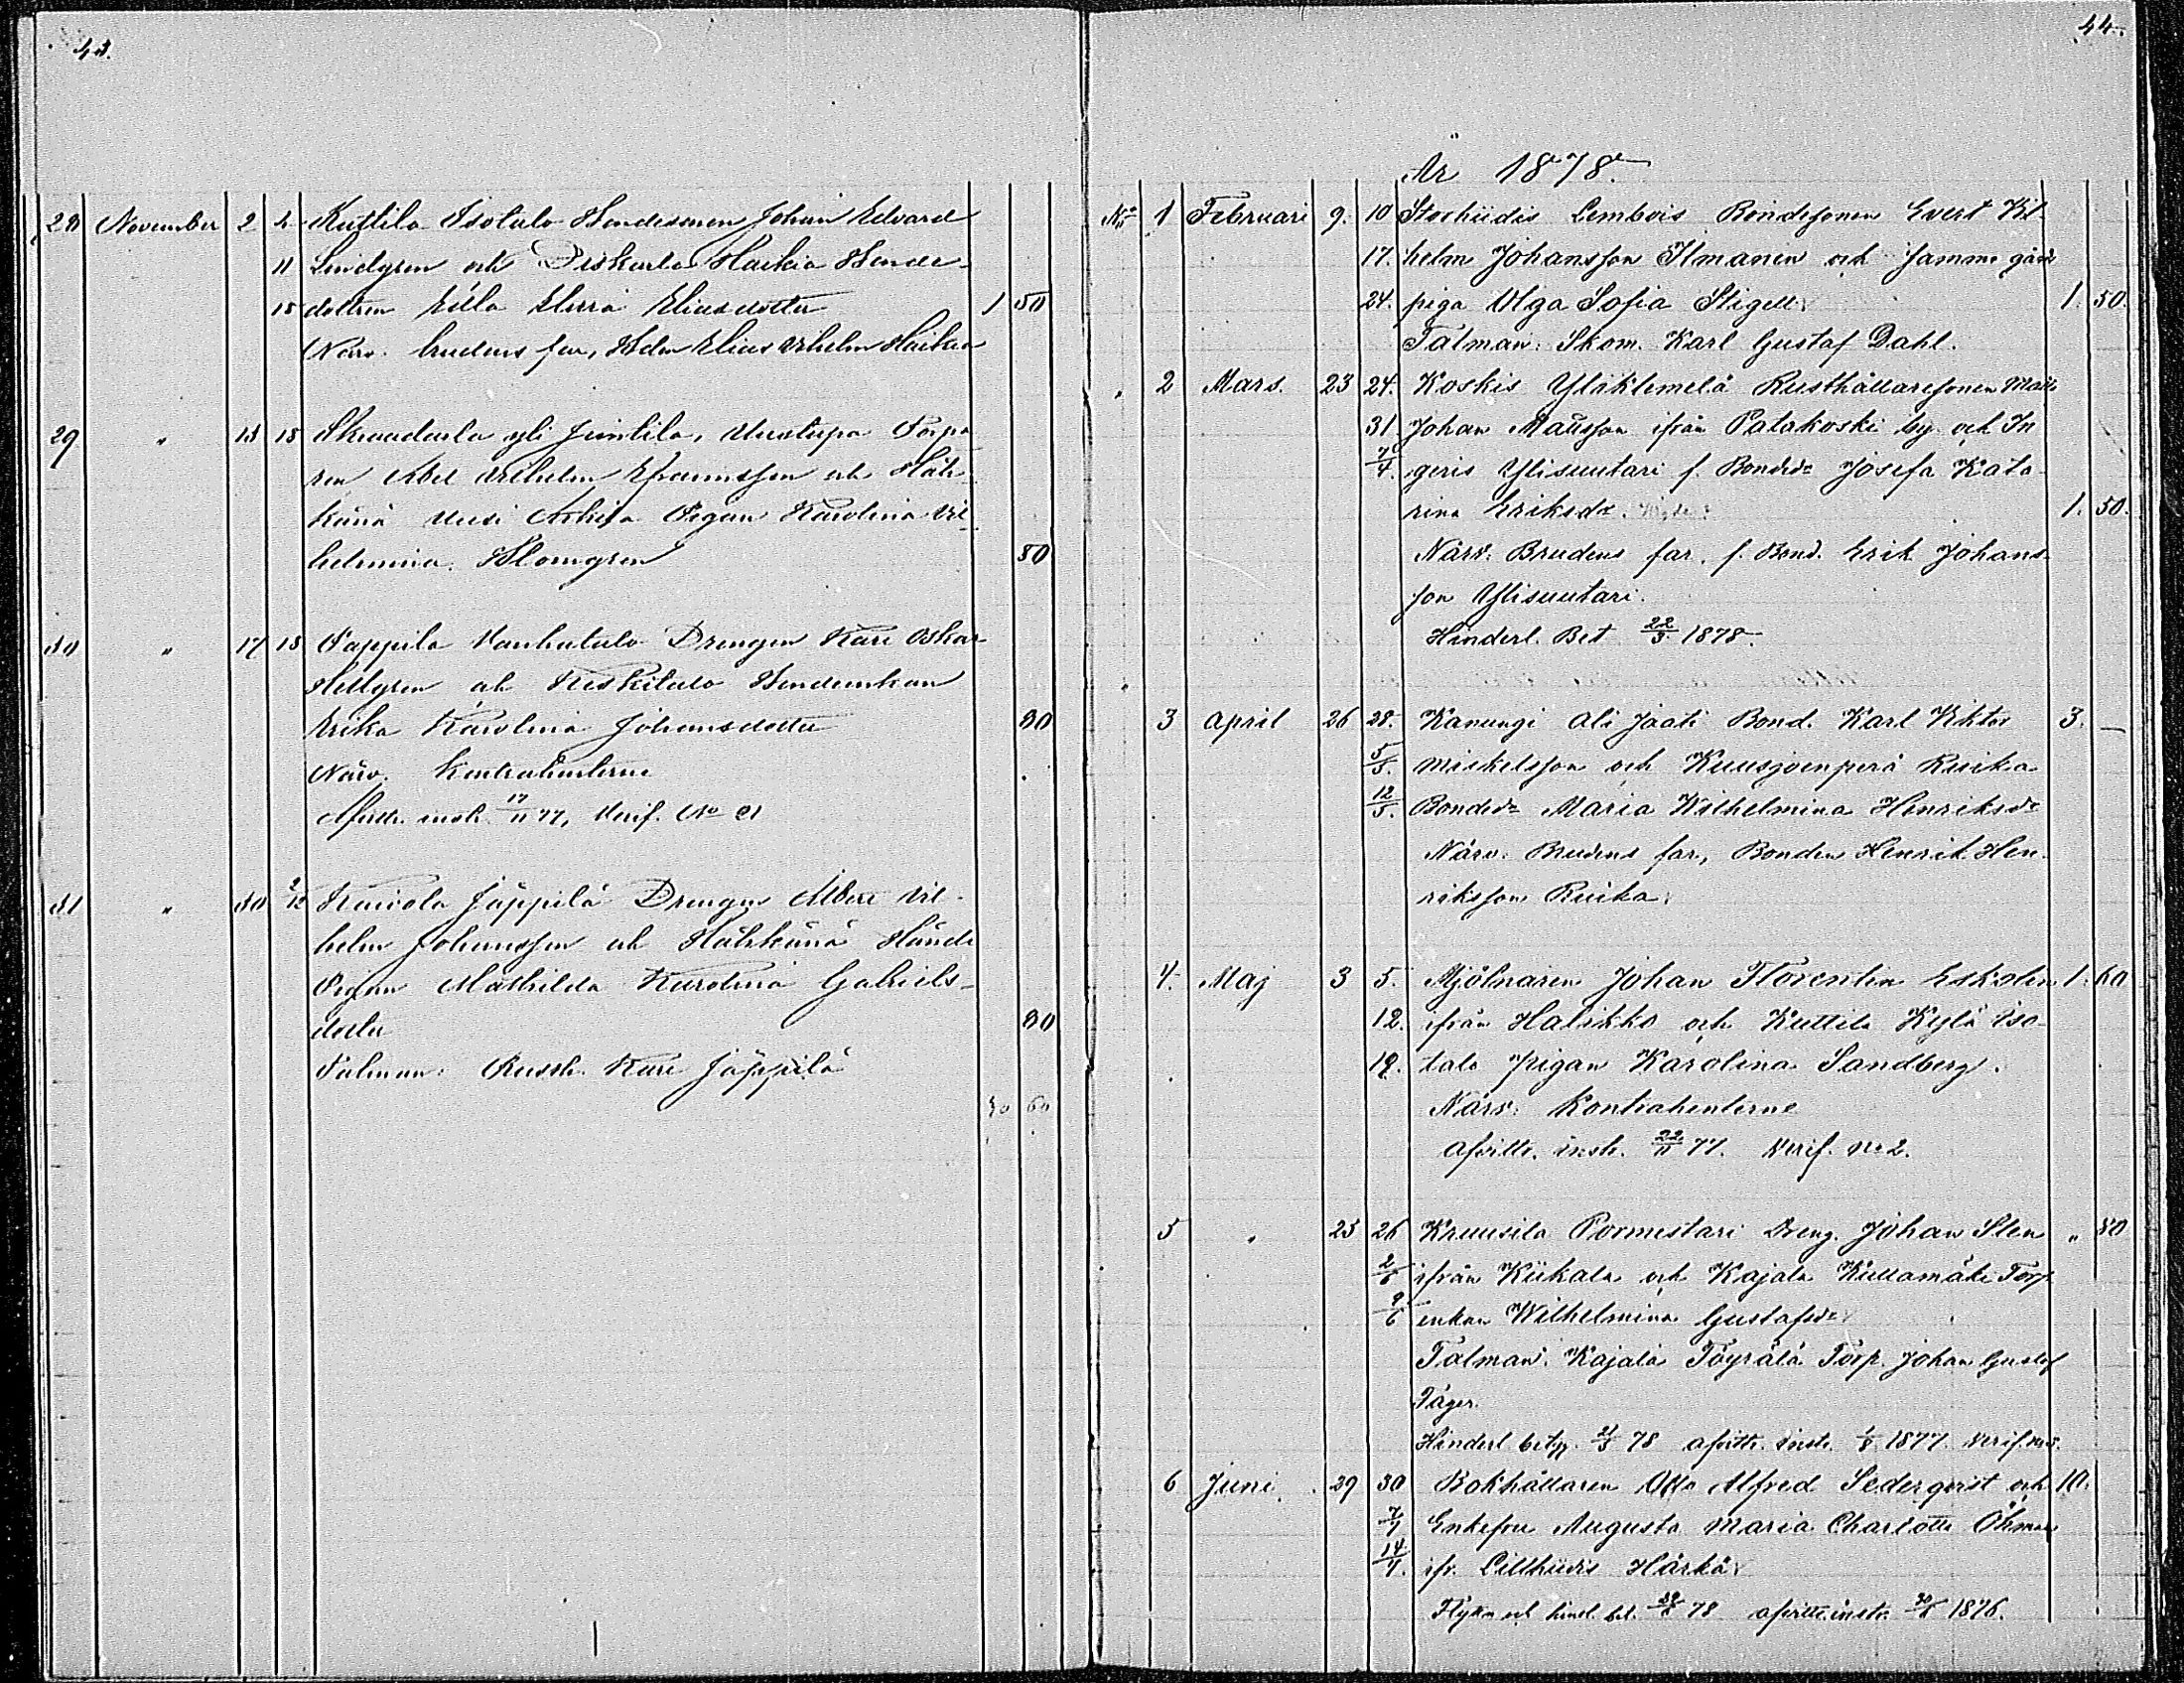 43.
28 November 2 4 Kuttila Isotalo Bondesonen Johan Edvard
11 Lindgren och Piskarla Haikia Bonde-
18 dottren Ulla Maria Eliasdotter 1 50
Närv. brudens far, Bden Elias Vilhelm Haikia
29 " 13 18 yli Juntila, Torpa-
ren Abel Vilhelm och Häh-
känä Uusi Pigan Karolina Vil-
helmina Blomgren 80
30 " 17 18 Pappila Vanhatalo Drengen Karl Oskar
Hellgren och Keskitalo Bondeenkan
Erika Karolina Johansdotter 80
Närv. Kontrahenterne
Afvittr. instr. 17/11 77, Verif. No 21
31 " 30 2/12 Kaivola Jäppilä Drengen Albert Vil-
helm Johansson och Hähkänä
Pigan Mathilda Karolina Gabriels-
dotter 80
Talman: Rusth. Karl Jäppilä
30 60
44.
År 1878.
No 1 Februari 9. 10 Storhiidis Lembois Bondesonen Evert Vil-
17. helm Johansson Ilmanen och samme gårds
24. piga Olga Sofia Stigell 1. 50.
Talman: Skom. Karl Gustaf Dahl.
2 Mars. 23 24. Koskis Yläklemelä Rusthållaresonen Matts
31 Johan Mattsson ifrån Patakoski by och In-
7/4. geris Ylisuutari f. Bondedr Josefa Kata-
rina Eriksdr. 1. 50.
Närv: Brudens far, f. Bond. Erik Johans-
son Ylisuutari.
Hinderl. Bet 22/3 1878.
3 April 26 28. Kanungi Ali Jaati Bond. Karl Viktor 3. —
5/5. Mickelsson och Kuusjoenperä Ruika
12/5. Bondedr Maria Wilhelmina Henriksdr
Närv. Brudens far, Bonden Henrik Hen-
riksson Ruika.
4. Maj 3 5. Mjölnaren Johan Florentin Eskolin 1. 60
12. ifrån Halikko och Kuttila Kylä Iso-
19. talo pigan Karolina Sandberg.
Närv: Kontrahenterne
Afvittr. instr. 22/11 77. Verif. No 2.
5 " 25 26 Kruusila Pormestari Dreng. Johan Sten " 80
2/6 ifrån Kiikala och Kajala Kullamäki Torp.
9/6 enkan Wilhelmina Gustafsdr
Talman: Kajala Töyrälä Torp. Johan Gustaf
Täger.
Hinderl. betyg. 21/5 78 afvittr. instr. 1/8 1877. Verif. No 3.
6 Juni 29 30 Bokhållaren Otto Alfred Sederqvist och 10.
7/7 Enkefru Augusta Maria Charlotte Öhman
14/7. ifr. Lillhiidis Härkä
Flyttn. och hind. bet. 29/6 78 afvittr. instr. 30/6 1876.